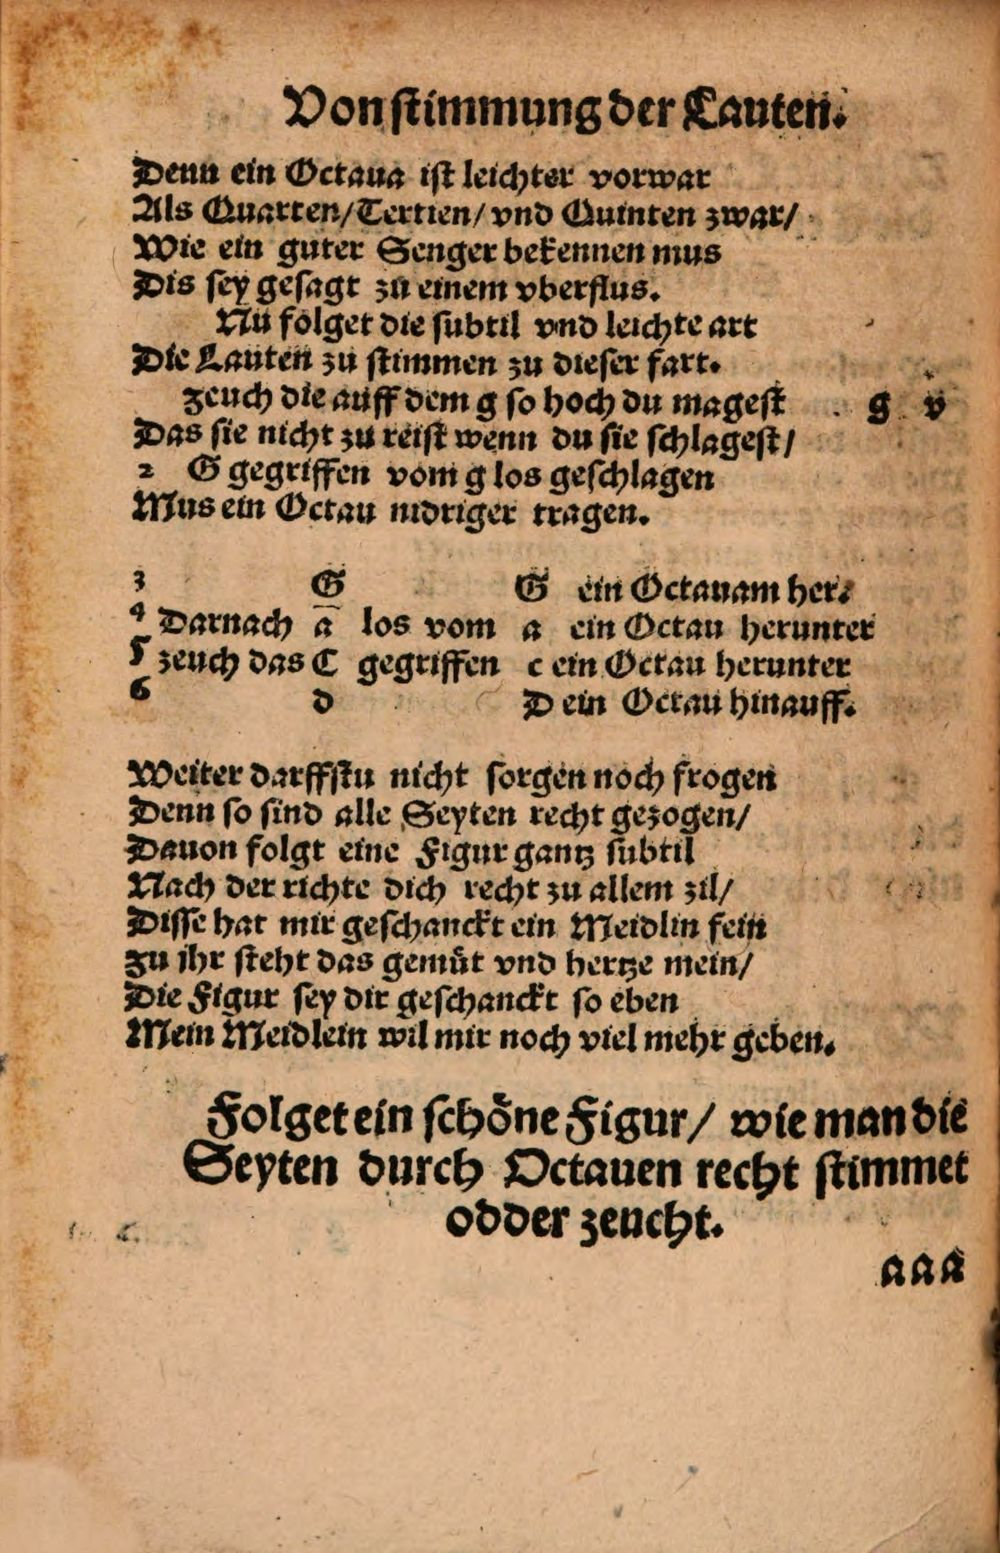 Von stimmung der Lauten.
Denn ein Octaua ist leichter vorwar
Als Quarten/Tertien/vnd Quinten zwar/
Wie ein guter Senger bekennen mus
Dis sey gesagt zu einem vberflus.
Nu folget die subtil vnd leichte art
Die Lauten zu stimmen zu dieser fart.
zeuch die auff dem g so hoch du magest g v
Das sie nicht zu reist wenn du sie schlagest/
2 G gegriffen vom g los geschlagen
Mus ein Octau nidriger tragen.
3 G G ein Octauam her.
4 Darnach a̅ los vom a ein Octau herunter
5 zeuch das C gegriffen c ein Octau herunter
6 d D ein Octau hinauff.
Weiter darffstu nicht sorgen noch frogen
Denn so sind alle Seyten recht gezogen/
Dauon folgt eine Figur gantz subtil
Nach der richte dich recht zu allem zil/
Disse hat mir geschanckt ein Meidlin fein
zu ihr steht das gemuͤt vnd hertze mein/
Die Figur sey dir geschanckt so eben
Mein Meidlein wil mir noch viel mehr geben.
Folget ein schoͤne Figur/ wie man die
Seyten durch Octauen recht stimmet
odder zeucht.
aaa